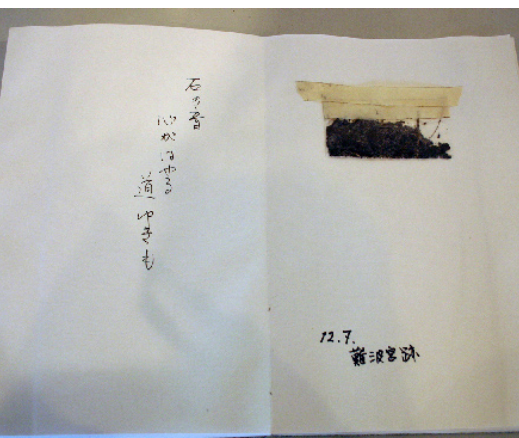 石の音
心がはやる
道ゆきも
12.7.
難波宮跡